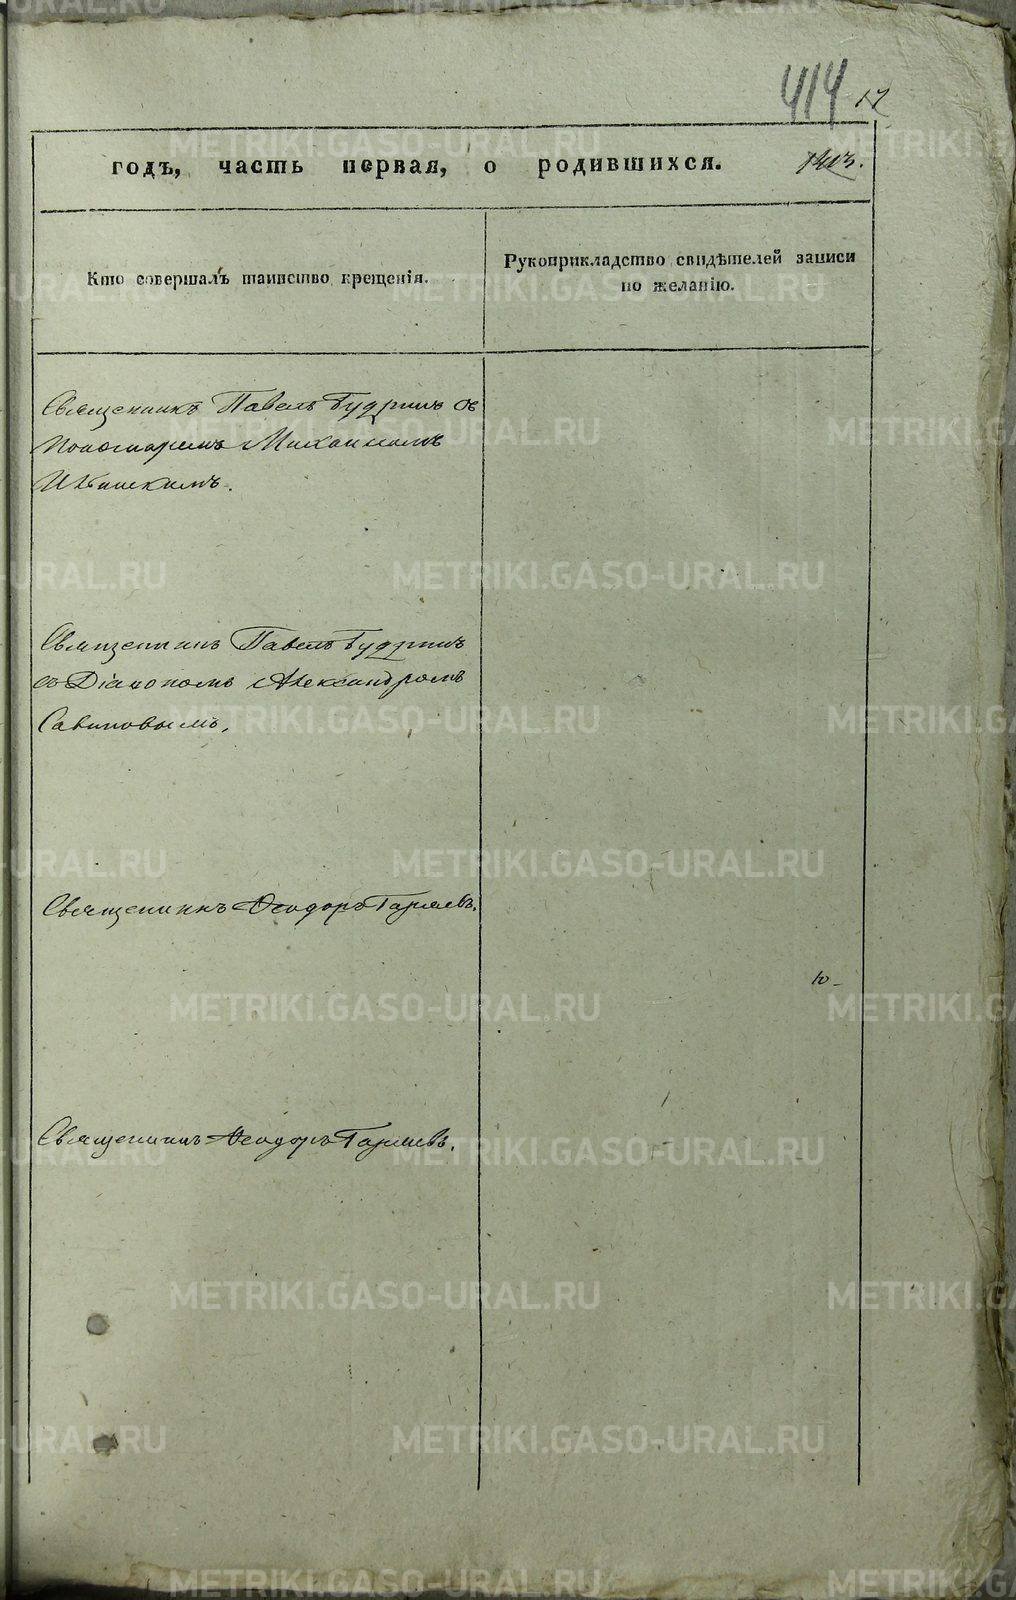 414 17
годъ, часть первая, о родившихся. 1403.
Кто совершалъ таинство крещенія.
Рукоприкладство свидѣтелей записи
по желанію.
Священникъ Павелъ Будринъ съ
пономаремъ Михаиломъ
Ивинскимъ.
Священникъ Павелъ Будринъ
съ Діакономъ Александромъ
Савиновымъ.
Священникъ Ѳеодоръ Гаряевъ.
10-
Священникъ Ѳеодоръ Гаряевъ.
METRIKI.GASO-URAL.RU